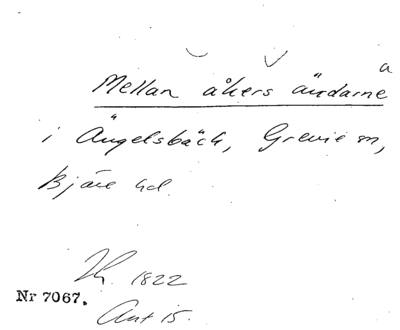 a
Mellan åkers ändarne
i Ängelsbäck, Grevie sn,
Bjäre hd.
1822
Nr 7067.
Ant 15.